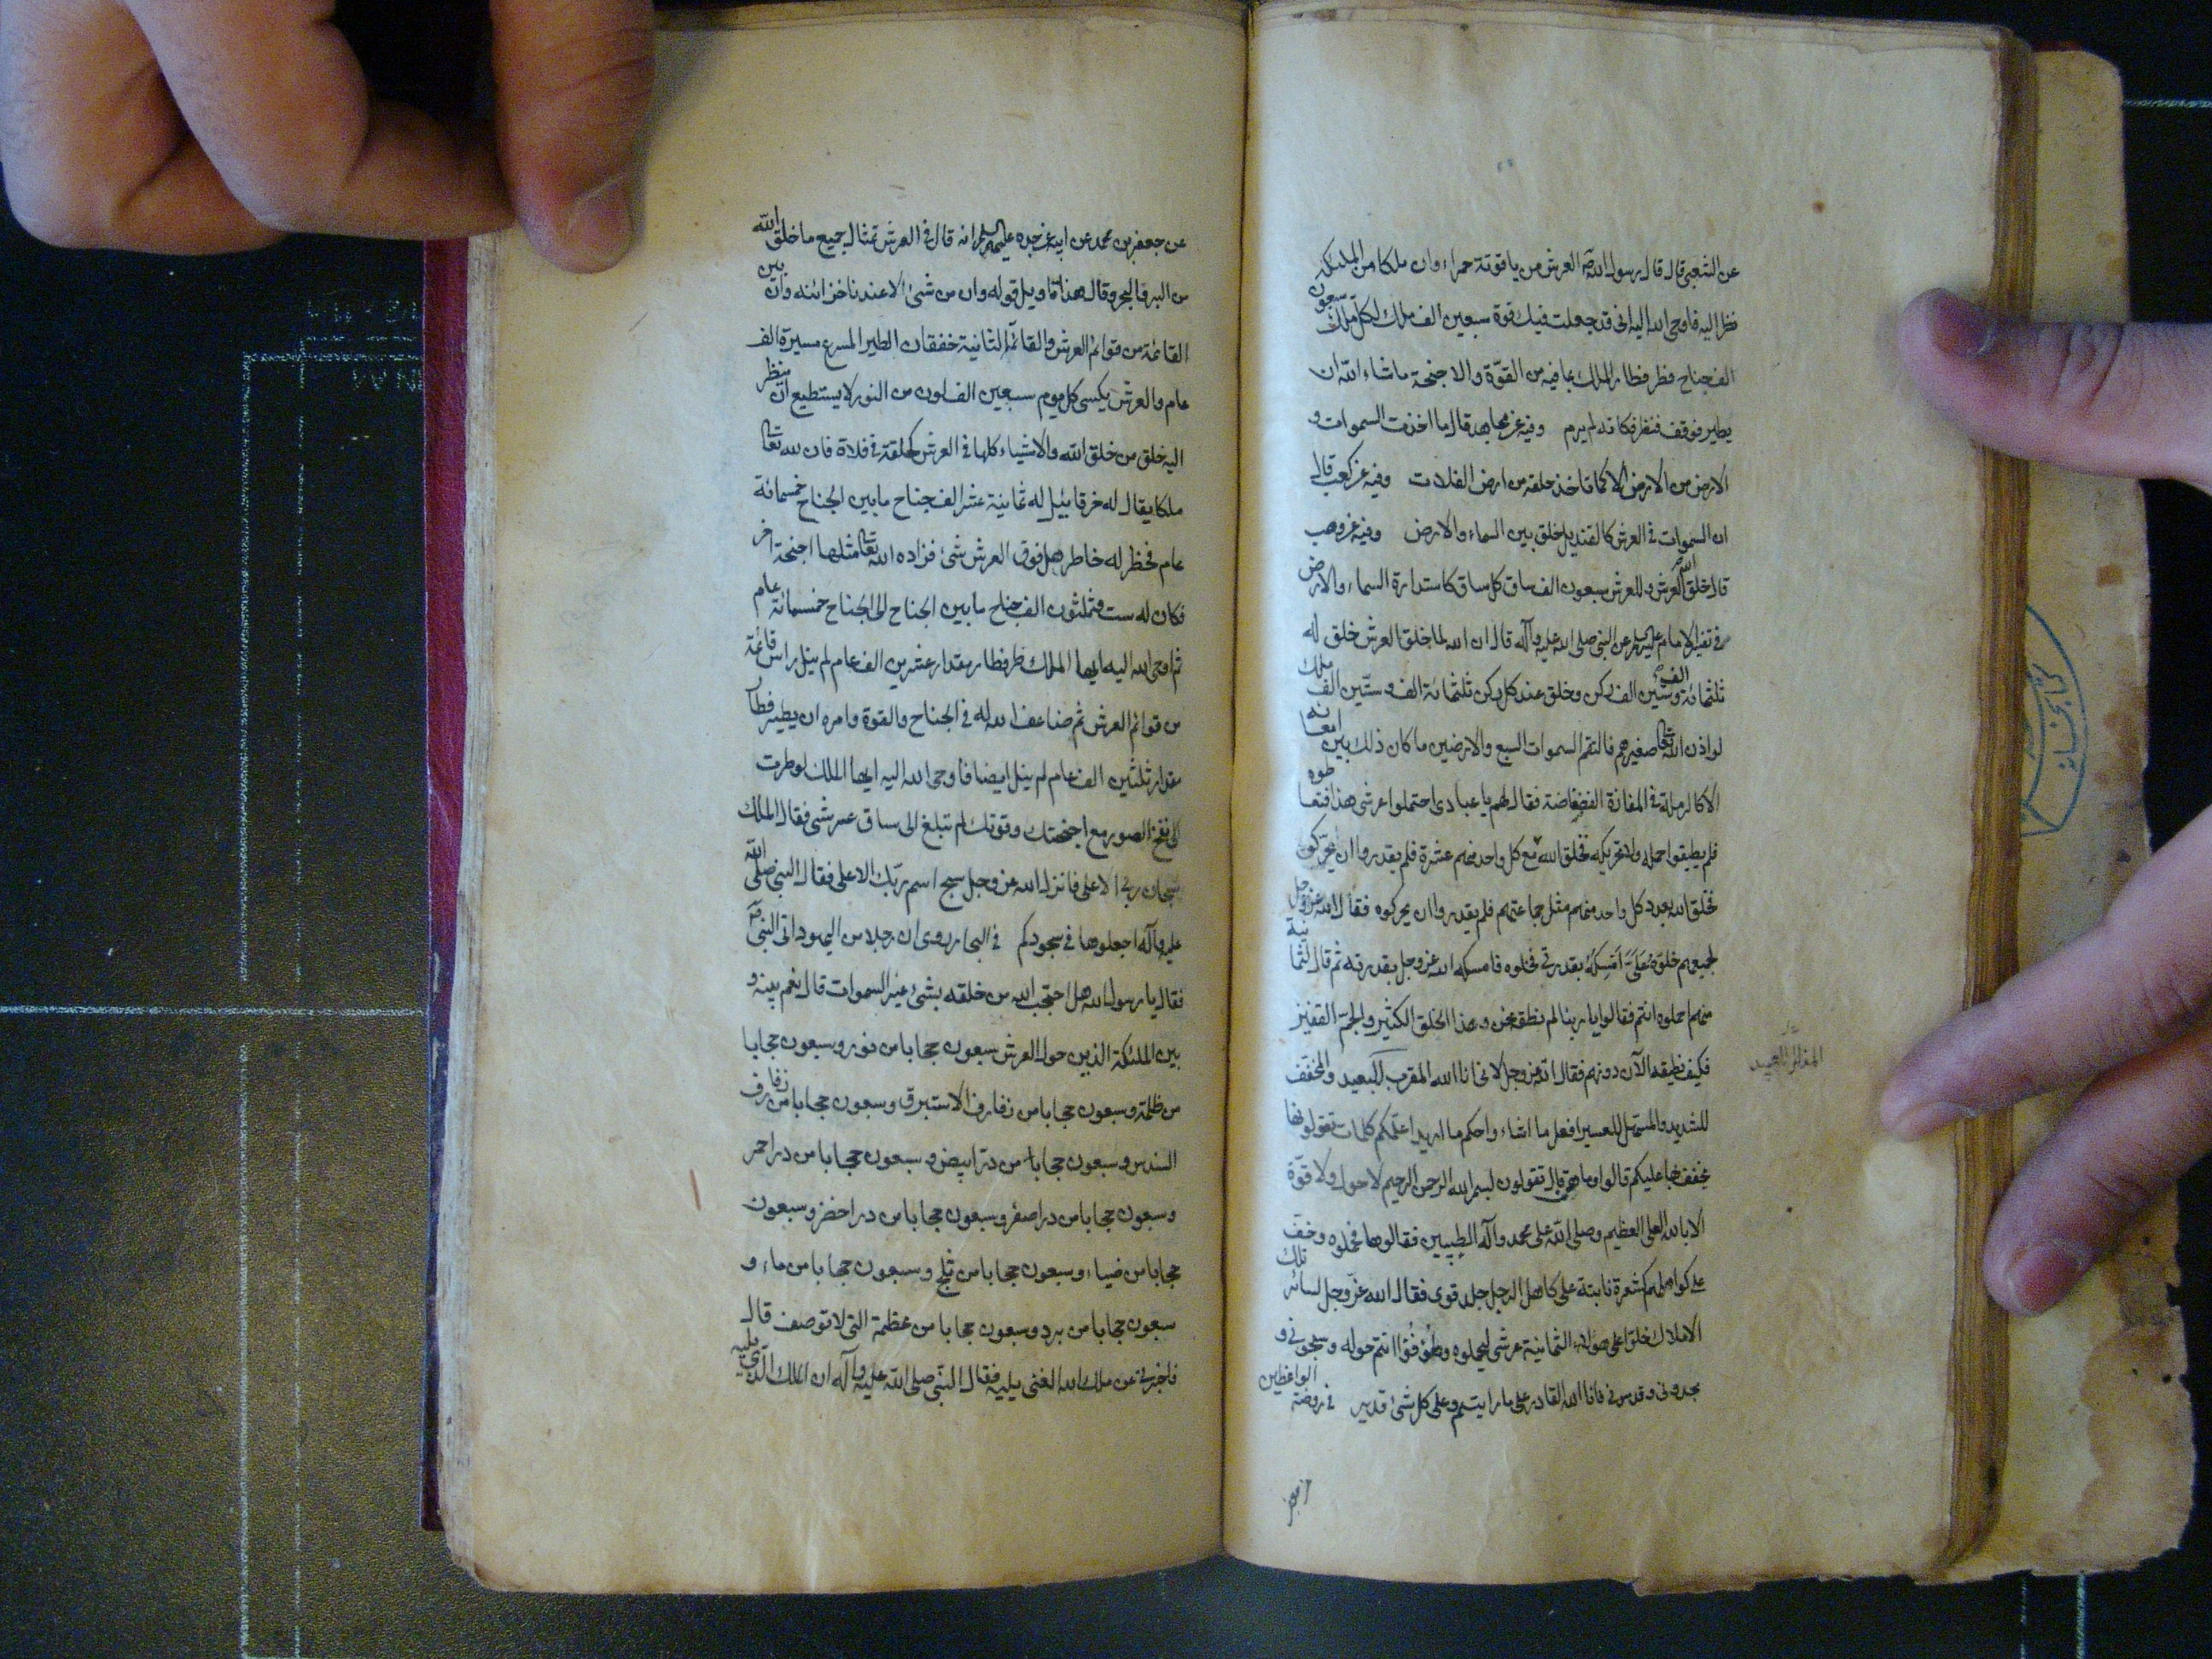 عن الشعبي قال قال رسول الله ص العرش من ياقوتة حمراء وان ملكا من الملئكة
نظر اليه فاوحى الله اليه انى قد جعلت فيك قوة سبعين الف ملك لكل ملك سبعون
الف جناح فطر فطار الملك بما فيه من القوّة والاجنحة ماشاء الله ان
يطير فوقف فنظر فكانه لم يرم وفيه عن مجاهد قال ما اخذت السموات و
الارض من الارض الا كما تاخذ حلقة من ارض الفلات وفيه عن كعب قال
ان السموات فى العرش كالقنديل خلق بين السماء والارض وفيه عن وهب
قال خلق الله العرش وللعرش سبعون الف ساق كل ساق كاستدارة السماء والارض
فى تفسير الامام عليه السلام عن النبى صلى الله عليه وآله قال ان الله لما خلق العرش خلق له
ثلثمائة وستين الف ركن وخلق عند كل ركن ثلثمائة الف وستين الف ملك
لو اذن الله تعالى اصغيرهم فالتقم السموات السبع والارضين ما كان ذلك بين لهواته
الا كالرملة فى المفازة الفضفاضة فقال لهم يا عبادى احتملوا عرشى هذا فتعاطوه
فلم يطيقوا حمله ولا تحريكه فخلق الله مع كل واحد منهم عشرة فلم يقدروا ان يحركوه
فخلق الله بعدد كل واحد منهم مثل جماعتهم فلم يقدروا ان يحركوه فقال الله عز وجل
لجميعهم خلوّه علىّ امسكه بقدرتى فخلوه فامسكه الله عز وجل بقدرته ثم قال لثمانية
منهم احملوه انتم فقالوا يا ربنا لم نطقه نحن وهذا الخلق الكثير والجمّ الغفير
فكيف نطيقه الآن دونهم فقال الله عز وجل لانى انا الله المقرب للبعيد والمخفف
للشديد والمسهل للعسير افعل ما اشاء واحكم ما اريد اعلمكم كلمات تقولونها
يخفف بها عليكم قالوا وما هى قال تقولون بسم الله الرحمن الرحيم لا حول ولا قوّة
الا بالله العلى العظيم وصلى الله على محمد وآله الطيبين فقالوها فحملوه وخفّ
على كواهلهم كشعرة نابتة على كاهل الرجل جلد قوى فقال الله عزّ وجل لسائر تلك
الاملاك خلوا على هؤلاء الثمانية عرشى ليحملوه وطوفوا انتم حوله وسبحونى و
مجدونى وقدسونى فانا الله القادر على ما رايتم وعلى كل شئ قدير فى روضة الواعظين
عن جعفر بن محمد عن ابيه عن جده عليهم السلام انه قال فى العرش تمثال جميع ما خلق الله
من البر والبحر وقال هذا تاويل قوله وان من شئ الا عندنا خزائنه وان بين
القائمة من قوائم العرش والقائمة الثانية خفقان الطير المسرع مسيرة الف
عام والعرش يكسى كل يوم سبعين الف لون من النور لا يستطيع ان ينظر
اليه خلق من خلق الله والاشياء كلها فى العرش كحلقة فى فلاة فان لله تعالى
ملكا يقال له خرقائيل له ثمانية عشر الف جناح ما بين الجناح خمسمائة
عام فخطر له خاطر هل فوق العرش شئ فزاده الله تعالى مثلها اجنحة اخر
فكان له ست وثلثون الف جناح ما بين الجناح الى الجناح خمسمائة عام
ثم اوحى الله اليه ايها الملك طر فطار مقدار عشرين الف عام لم ينل راس قائمة
من قوائم العرش ثم ضاعف الله له فى الجناح والقوة وامره ان يطير فطار
مقدار ثلثين الف عام لم ينل ايضا فاوحى الله اليه ايها الملك لو طرت
الى نفخ الصور مع اجنحتك وقوتك لم تبلغ الى ساق عرشى فقال الملك
سبحان ربى الاعلى فانزل الله عز وجل سبح اسم ربّك الاعلى فقال النبى صلى الله
عليه وآله اجعلوها فى سجودكم فى البحار روى ان رجلا من اليهود اتى النبى ص
فقال يا رسول الله هل احتجب الله من خلقه بشئ غير السموات قال نعم بينه و
بين الملئكة الذين حول العرش سبعون حجابا من نور وسبعون حجابا
من ظلمة وسبعون حجابا من رفارف الاستبرق وسبعون حجابا من رفارف
السندس وسبعون حجابا من درّ ابيض وسبعون حجابا من در احمر
وسبعون حجابا من در اصفر وسبعون حجابا من در اخضر وسبعون
حجابا من ضياء وسبعون حجابا من ثلج وسبعون حجابا من ماء و
سبعون حجابا من برد وسبعون حجابا من عظمة التى لا توصف قال
فاخبرنى عن ملك الله الذى يليه فقال النبى صلى الله عليه وآله ان الملك الذى يليه